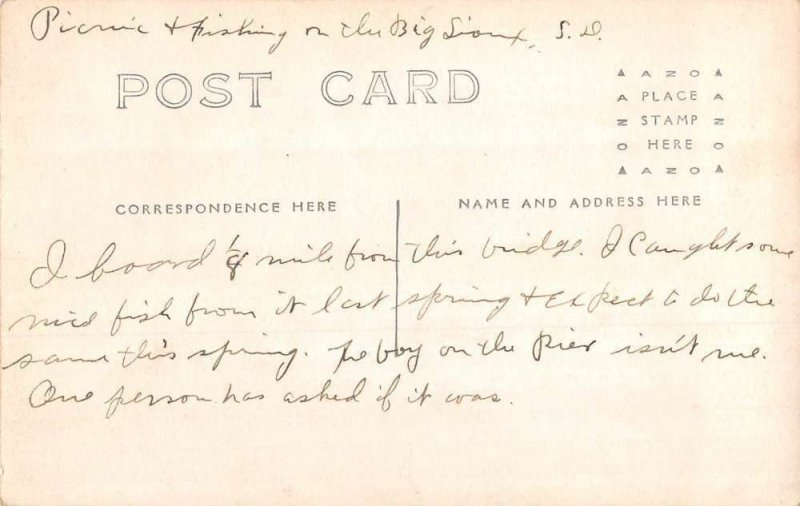 Picnic & Fishing on the Big Sioux, S.D.
POST CARD
▲ A Z O ▲
A PLACE A
Z STAMP Z
O HERE O
▲ A Z O ▲
CORRESPONDENCE HERE
NAME AND ADDRESS HERE
I board 1/8 mile from this bridge. I caught some
nice fish from it last spring & expect to do the
same this spring. The boy on the Pier isn't me.
One person has asked if it was.